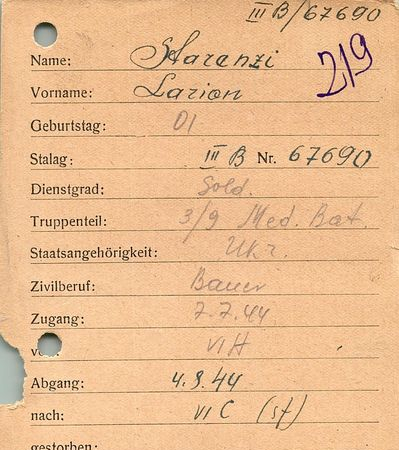 III B/67690
Name: Staranzi
219
Vorname: Larion
Geburtstag: 01
Stalag: III B Nr. 67690
Dienstgrad: Sold.
Truppenteil: 3/9 Med. Bat.
Staatsangehörigkeit: Ukr.
Zivilberuf: Bauer
Zugang: 7.7.44
VI H
Abgang: 4.9.44
nach: VI C (sf)
gestorben: